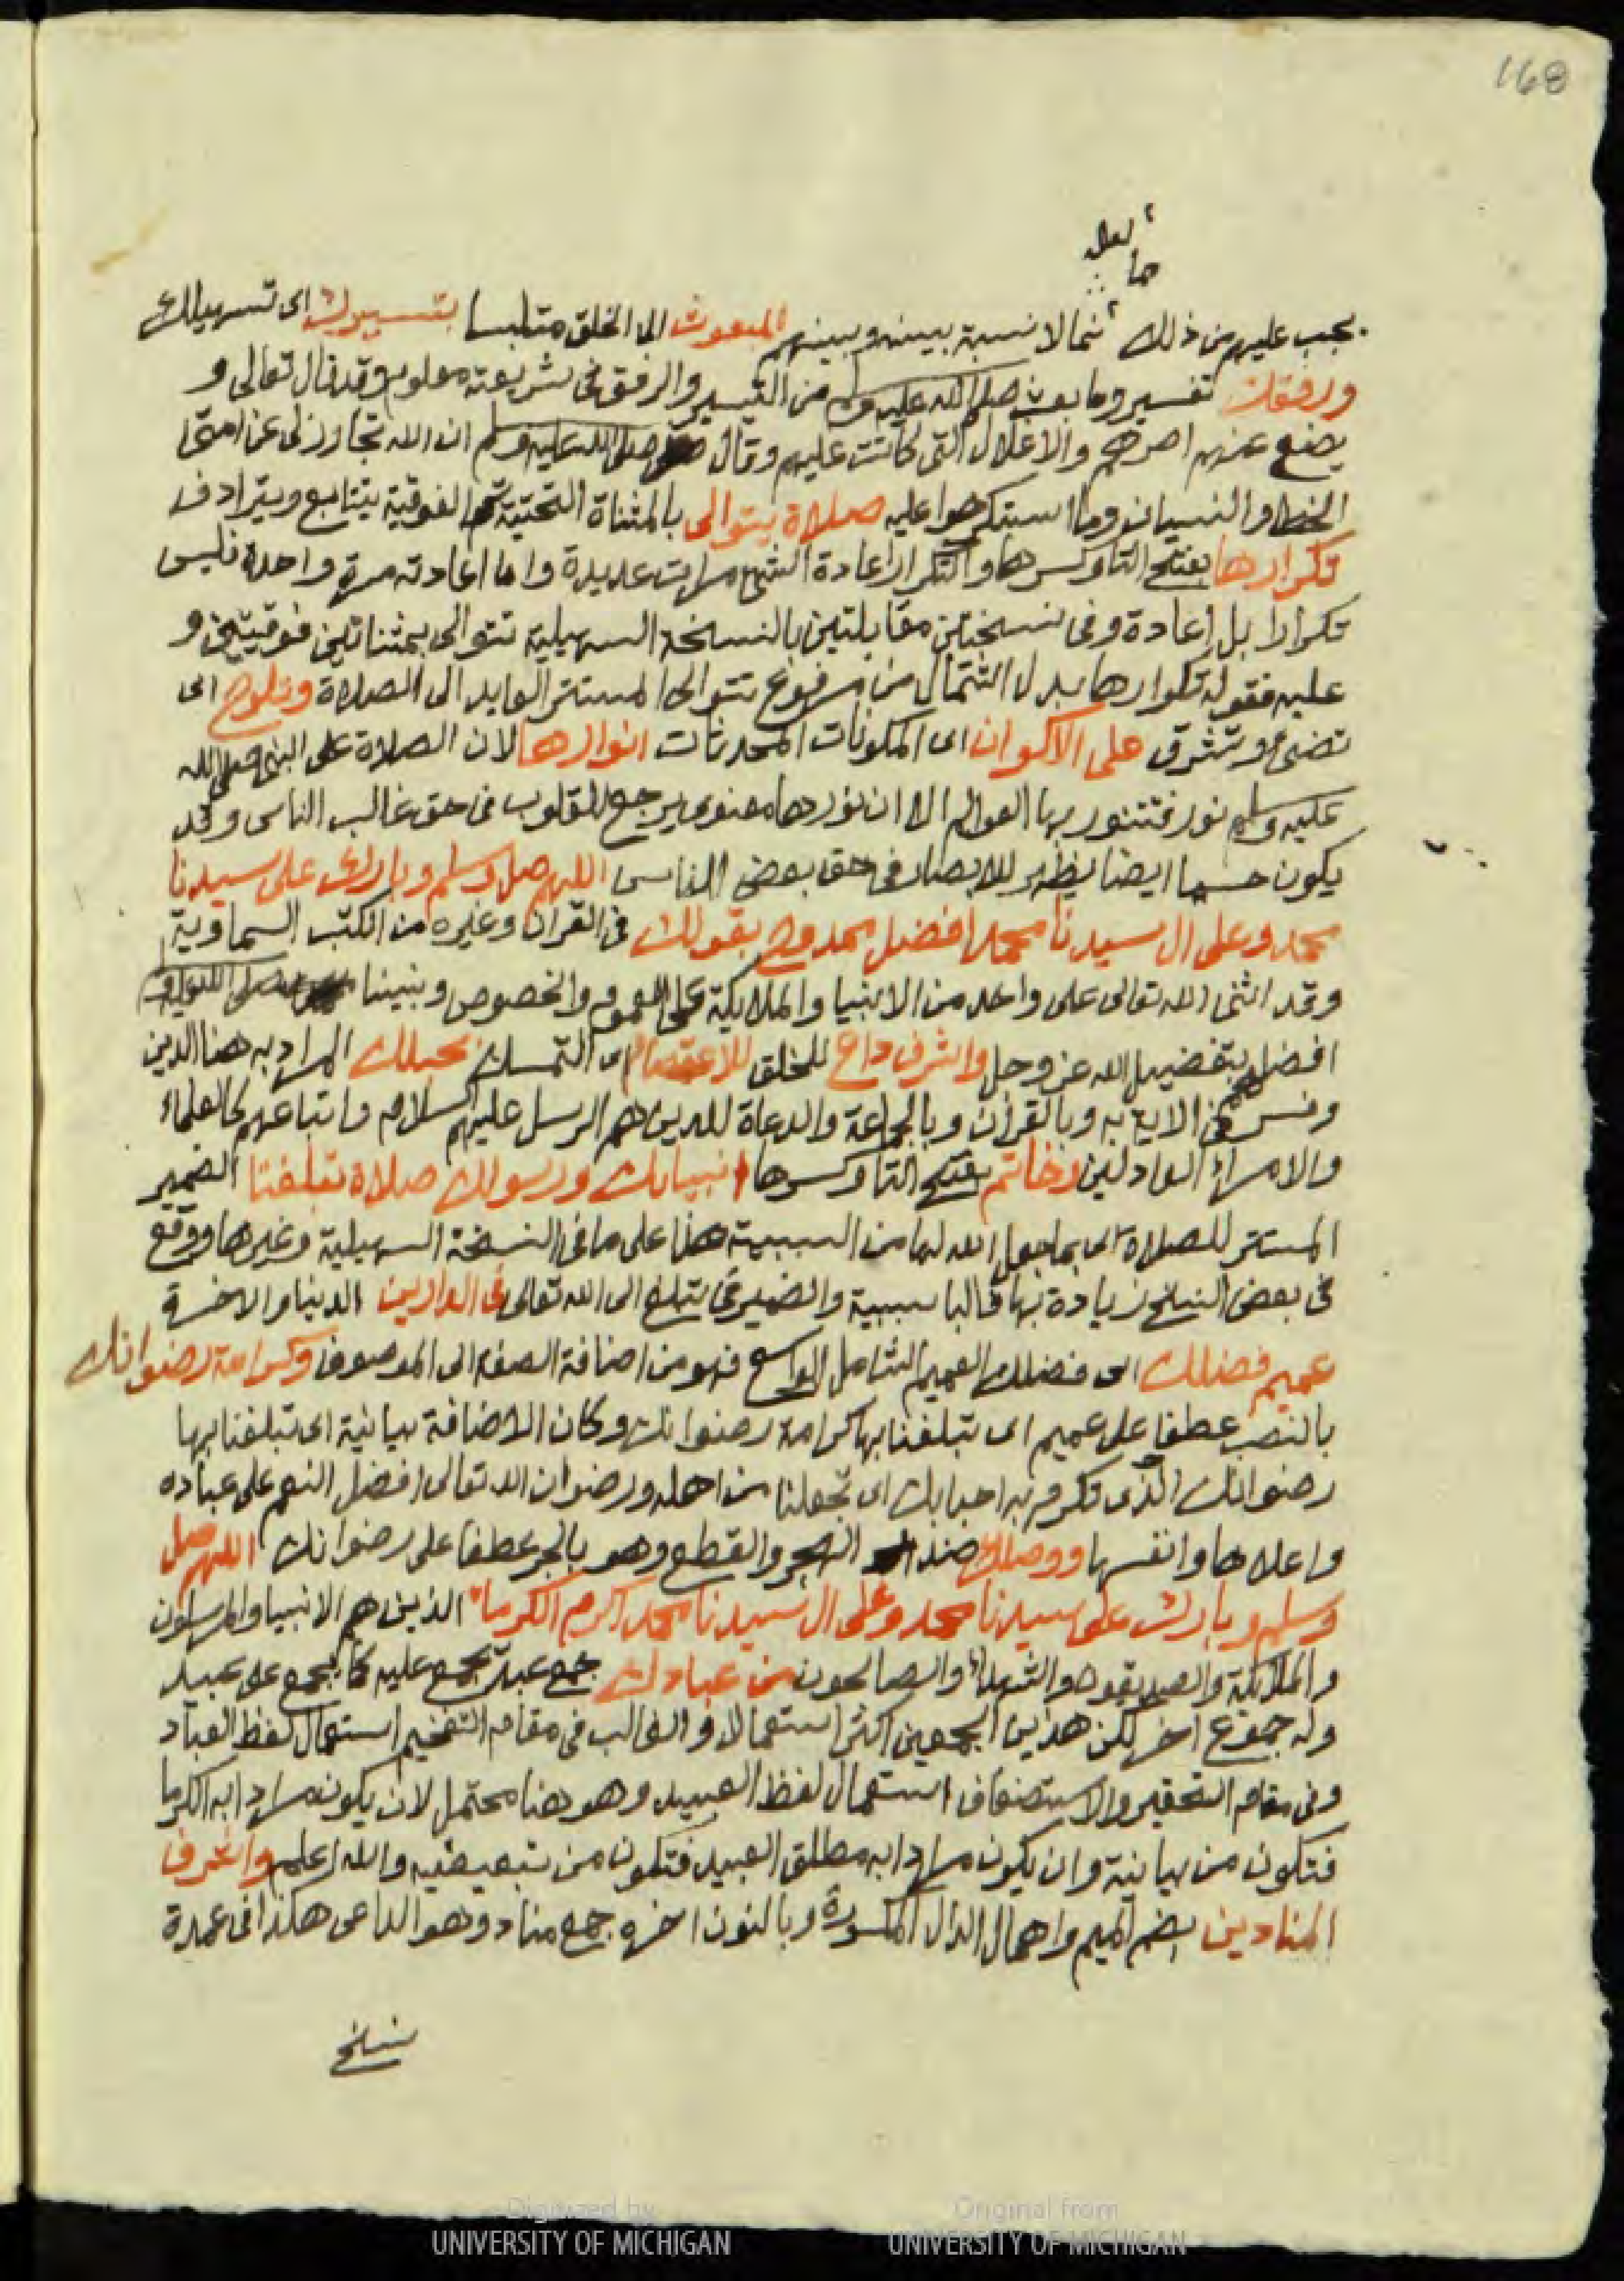 168
لعله
مما
يجب عليهم من ذلك ثما لا نسبة بينه وبينهم المبعوث الى الخلق متلبسا بتيسيرك اى تسهيلك
ورفقك تفسير وما بعث صلى الله عليه وسلم من التيسير والرفق فى شريعته معلوم وقد قال تعالى و
يضع عنهم اصرهم والاغلال التى كانت عليهم وقال صلى الله عليه وسلم ان الله تجاوز لى عن امتى
الخطا والنسيان وما استكرهوا عليه صلاة يتوالى بالمثناة التحتية ثم الفوقية يتتابع ويترادف
تكرارها بفتح التا وكسرها والتكرار اعادة الشئ مرات عديدة واما اعادته مرة واحدة فليس
تكرارا بل اعادة وفى نسختين مقابلتين بالنسخة السهيلية تتوالى بمثناتين فوقيتين و
عليه فقوله تكرارها بدل اشتمال من مرفوع تتوالى المستتر العايد الى الصلاة وتلوح اى
تضئ وتشرق على الاكوان اى المكونات المحدثات انوارها لان الصلاة على النبى صلى الله
عليه وسلم نور فتتنور بها العوالم الا ان نورها معنوى يرجع للقلوب فى حق غالب الناس وقد
يكون حسيا ايضا يظهر للابصار فى حق بعض الناس اللهم صل وسلم وبارك على سيدنا
محمد وعلى ال سيدنا محمد افضل ممدوح بقولك فى القران وغيره من الكتب السماوية
وقد اثنى الله تعالى على واحد من الانبيا والملايكة على العموم والخصوص ونبينا صلى الله عليه وسلم
افضلهم بتفضيل الله عز وجل واشرف داع للخلق للاعتصام اى التمسك بحبلك المراد به هنا الدين
وفسر فى الاية به وبالقران وبالجماعة والدعاة للدين هم الرسل عليهم السلام واتباعهم كالعلماء
والامراء العادلين وخاتم بفتح التا وكسرها انبيايك ورسولك صلاة تبلغنا الضمير
المستتر للصلاة اى بما جعل الله لها من السببية هذا على ما فى النسخة السهيلية وغيرها ووقع
فى بعض النسخ زيادة بها فالبا سببية والضمير فى تبلغ الى الله تعالى فى الدارين الدنيا والاخرة
عميم فضلك اى فضلك العميم الشامل الواسع فهو من اضافة الصفة الى الموصوف وكرامة رضوانك
بالنصب عطفا على عميم اى تبلغنا بها كرامة رضوانك وكان الاضافة بيانية اى تبلغنا بها
رضوانك الذى تكرم به احبابك اى تجعلنا من اهله ورضوان الله تعالى افضل النعم على عباده
واعلاها وانفسها ووصلك ضد الهجر والقطع وهو بالجر عطفا على رضوانك اللهم صل
وسلم وبارك على سيدنا محمد وعلى ال سيدنا محمد اكرم الكرماء الذين هم الانبيا والمرسلون
والملايكة والصديقون والشهداء والصالحون من عبادك جمع عبد يجمع عليه كما يجمع على عبيد
وله جموع اخر لكن هذين الجمعين اكثر استعمالا والغالب فى مقام التفخيم استعمال لفظ العباد
وفى مقام التحقير والاستضعاف استعمال لفظ العبيد وهو هنا محتمل لان يكون مرادا به الكرما
فتكون من بيانية وان يكون مرادا به مطلق العبيد فتكون من تبعيضيه والله اعلم واشرف
المنادين بضم الميم واهمال الدال المكسورة وبالنون اخره جمع مناد وهو الداعى هكذا فى عمدة
نسخ
Digitized by
UNIVERSITY OF MICHIGAN
Original from
UNIVERSITY OF MICHIGAN